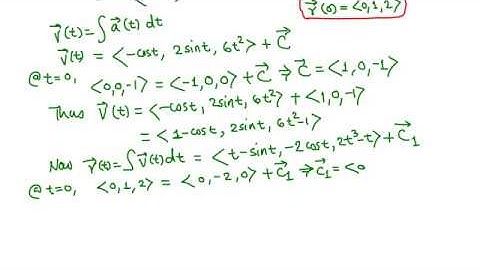 r⃗(0) = <0,1,2>
v⃗(t) = ∫a⃗(t) dt
v⃗(t) = <-cost, 2sint, 6t²> + C⃗
@t=0, <0,0,-1> = <-1,0,0> + C⃗ ⇒ C⃗ = <1,0,-1>
Thus v⃗(t) = <-cost, 2sint, 6t²> + <1,0,-1>
= <1-cost, 2sint, 6t²-1>
Now r⃗(t) = ∫v⃗(t)dt = <t-sint, -2cost, 2t³-t> + C⃗₁
@t=0, <0,1,2> = <0,-2,0> + C⃗₁ ⇒ C⃗₁ = <0